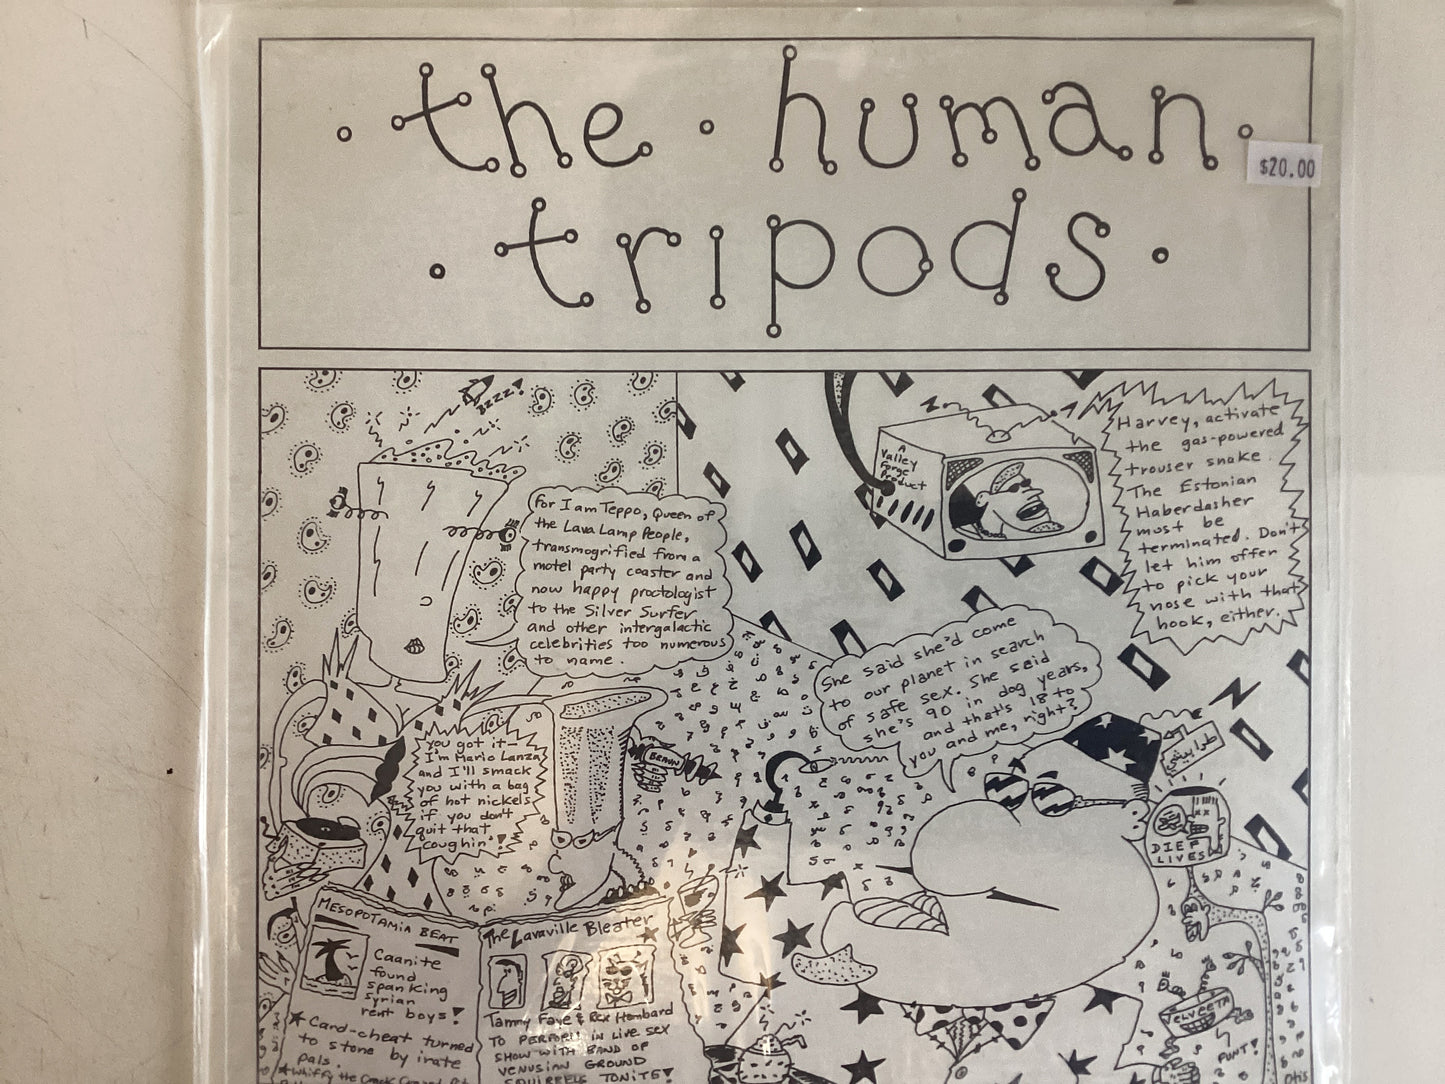 the human
$20.00
tripods
Bzzz!
for I am Teppo, Queen of
the Lava Lamp People,
transmogrified from a
motel party coaster and
now happy proctologist
to the Silver Surfer
and other intergalactic
celebrities too numerous
to name.
A
Valley
Forge
Product
Harvey, activate
the gas-powered
trouser snake.
The Estonian
Haberdasher
must be
terminated. Don't
let him offer
to pick your
nose with that
hook, either.
She said she'd come
to our planet in search
of safe sex. She said
she's 90 in dog years,
and that's 18 to
you and me, right?
You got it—
I'm Mario Lanza
and I'll smack
you with a bag
of hot nickels
if you don't
quit that
coughin'!
BRAUN
DIEF
LIVES
MESOPOTAMIA BEAT
Caanite
found
spanking
syrian
rent boys!
Card-cheat turned
to stone by irate
pals.
Whiffy the Crack
The Lavaville Bleater
Tammy Faye & Rex Humbard
TO PERFORM IN LIVE SEX
SHOW WITH BAND OF
VENUSIAN GROUND
SQUIRRELS TONITE!
VELVEETA
PUNT!